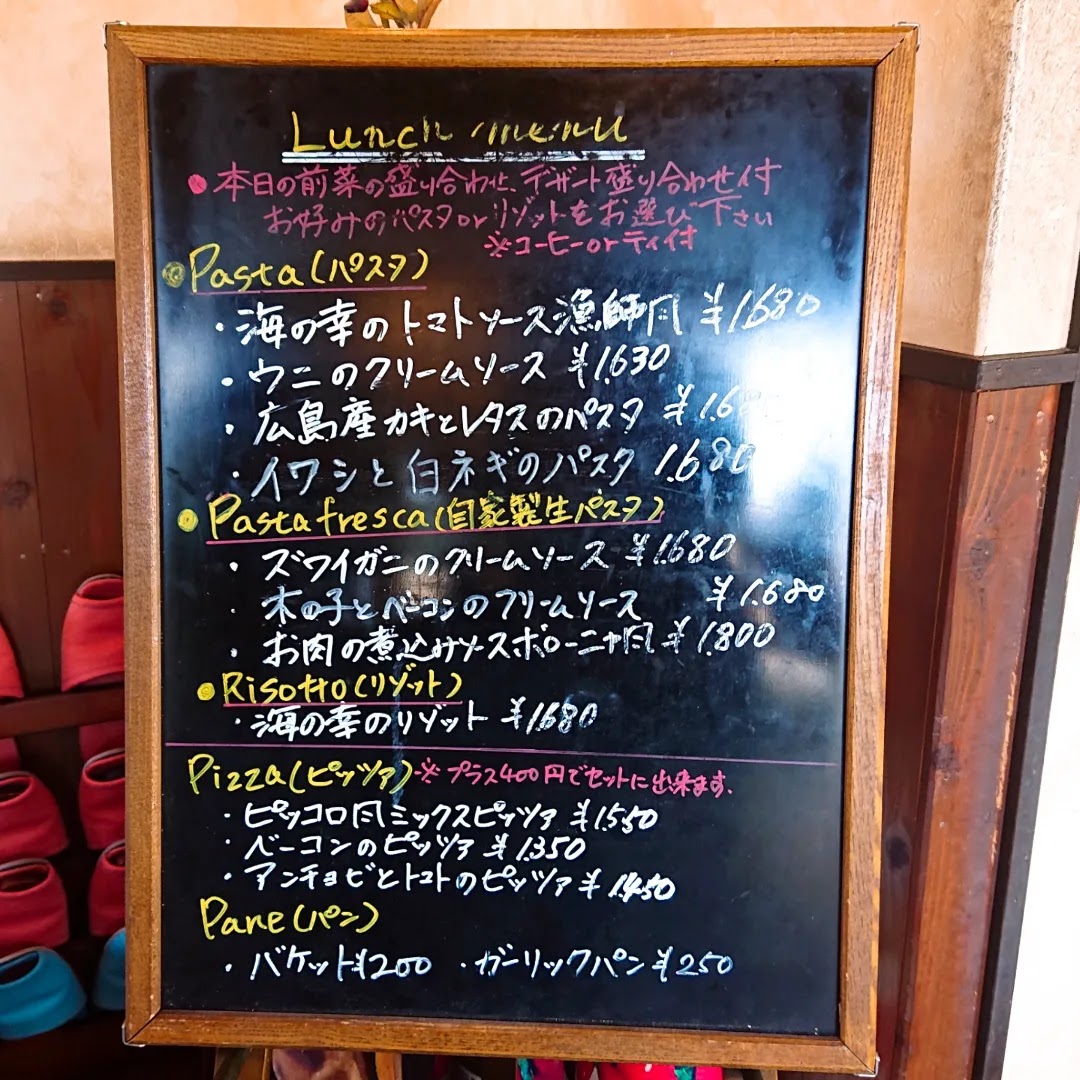 Lunch menu
●本日の前菜の盛り合わせ、デザート盛り合わせ付
お好みのパスタorリゾットをお選び下さい
※コーヒーorティ付
●Pasta(パスタ)
・海の幸のトマトソース漁師風 ¥1.680
・ウニのクリームソース ¥1.630
・広島産カキとレタスのパスタ
・イワシと白ネギのパスタ 1.680
●Pasta fresca(自家製生パスタ)
・ズワイガニのクリームソース ¥1.680
・木の子とベーコンのクリームソース ¥1.680
・お肉の煮込みソースボローニャ風 ¥1.800
●Risotto(リゾット)
・海の幸のリゾット ¥1680
Pizza(ピッツァ)※プラス400円でセットに出来ます.
・ピッコロ風ミックスピッツァ ¥1.550
・ベーコンのピッツァ ¥1.350
・アンチョビとトマトのピッツァ ¥1.450
Pane(パン)
・バケット¥200 ・ガーリックパン¥250